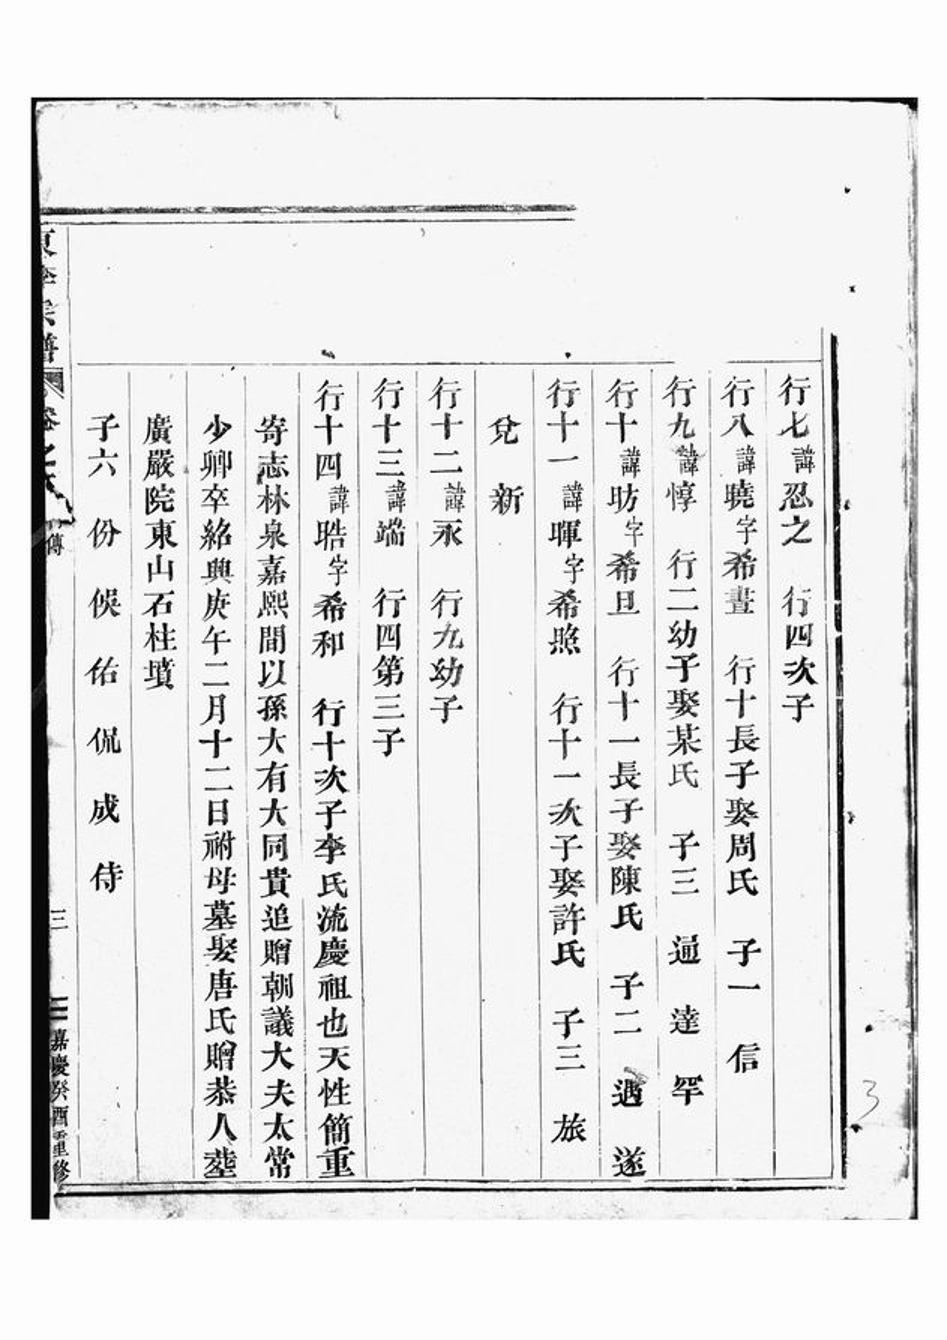 行七諱忍之　行四次子
行八諱曉字希晝　行十長子娶周氏　子一　信
行九諱惇　行二幼子娶某氏　子三　逼　達　罕
行十諱昉字希旦　行十一長子娶陳氏　子二　遇　遂
行十一諱暉字希照　行十一次子娶許氏　子三　旅
兌　新
行十二諱永　行九幼子
行十三諱端　行四第三子
行十四諱晧字希和　行十次子李氏流慶祖也天性簡重
寄志林泉嘉熙間以孫大有大同貴追贈朝議大夫太常
少卿卒紹興庚午二月十二日祔母墓娶唐氏贈恭人塟
廣嚴院東山石柱墳
子六　份　俁　佑　侃　成　侍
東李宗譜　卷之　傳　三　嘉慶癸酉重修
3